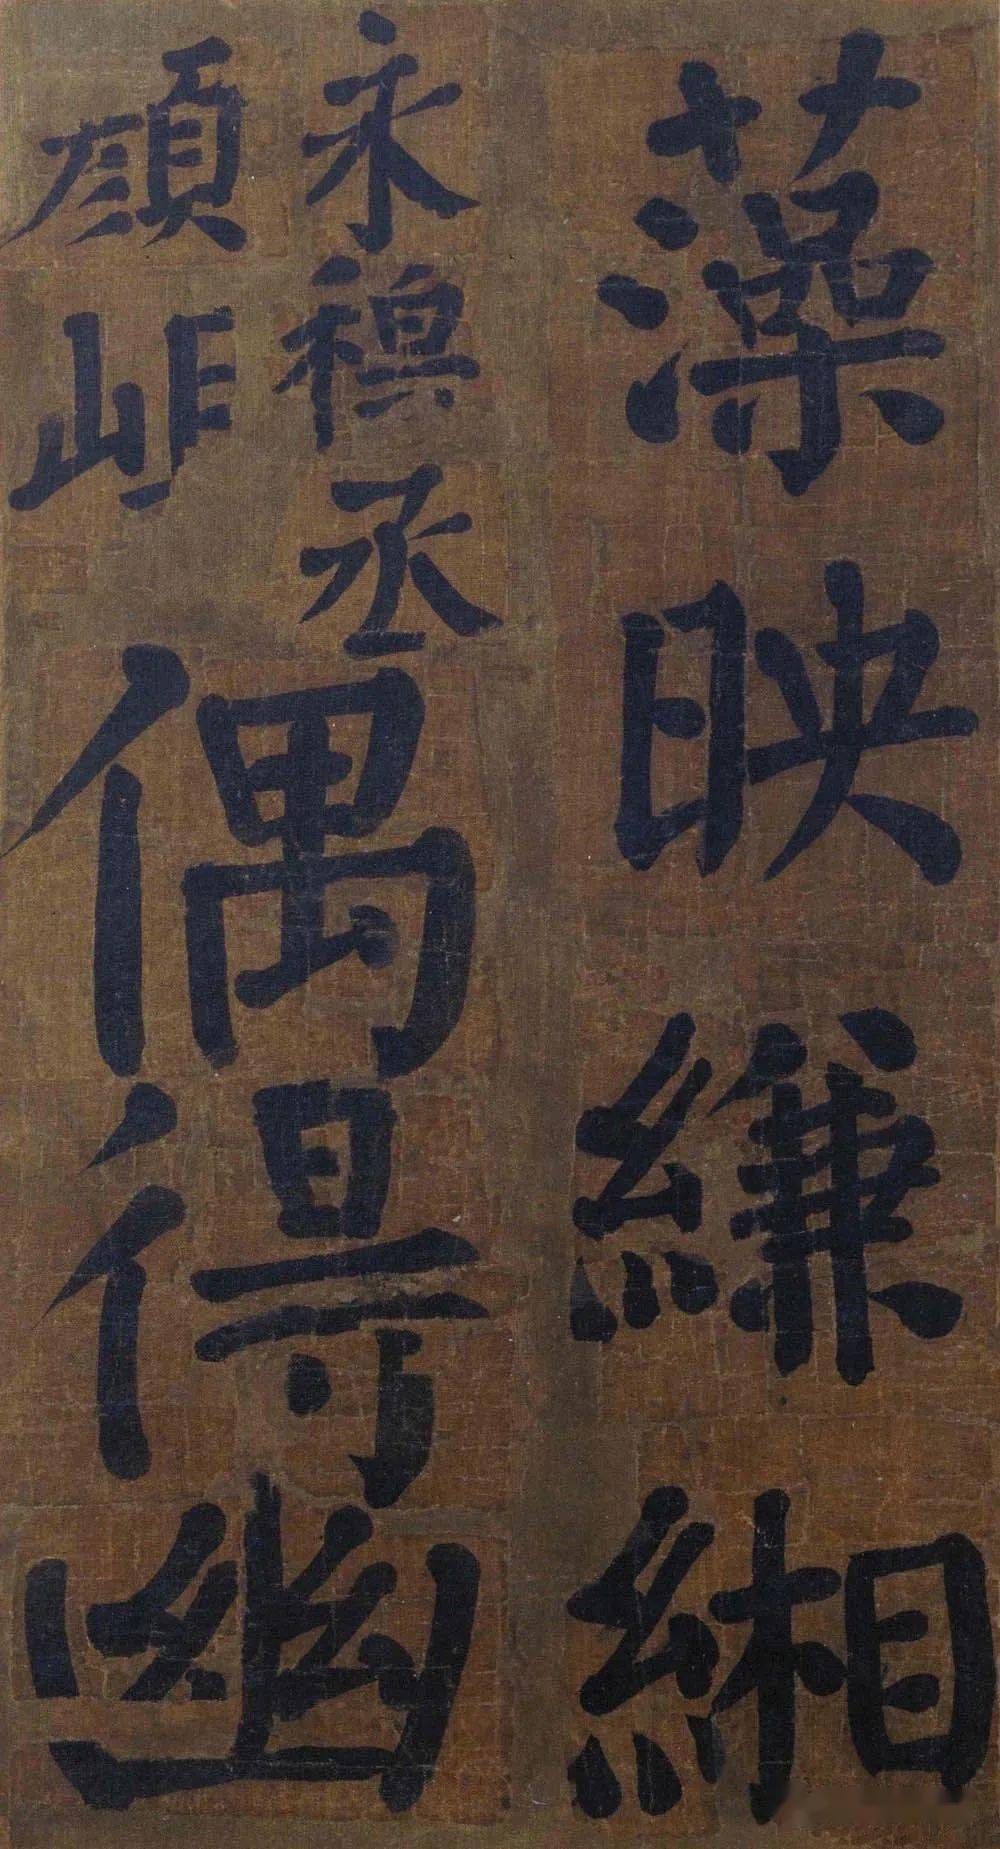 藻映縑緗
永穆丞
顏岯
偶得幽